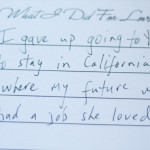 What I Did For Love
I gave up going to
to stay in California
where my future w
had a job she loved